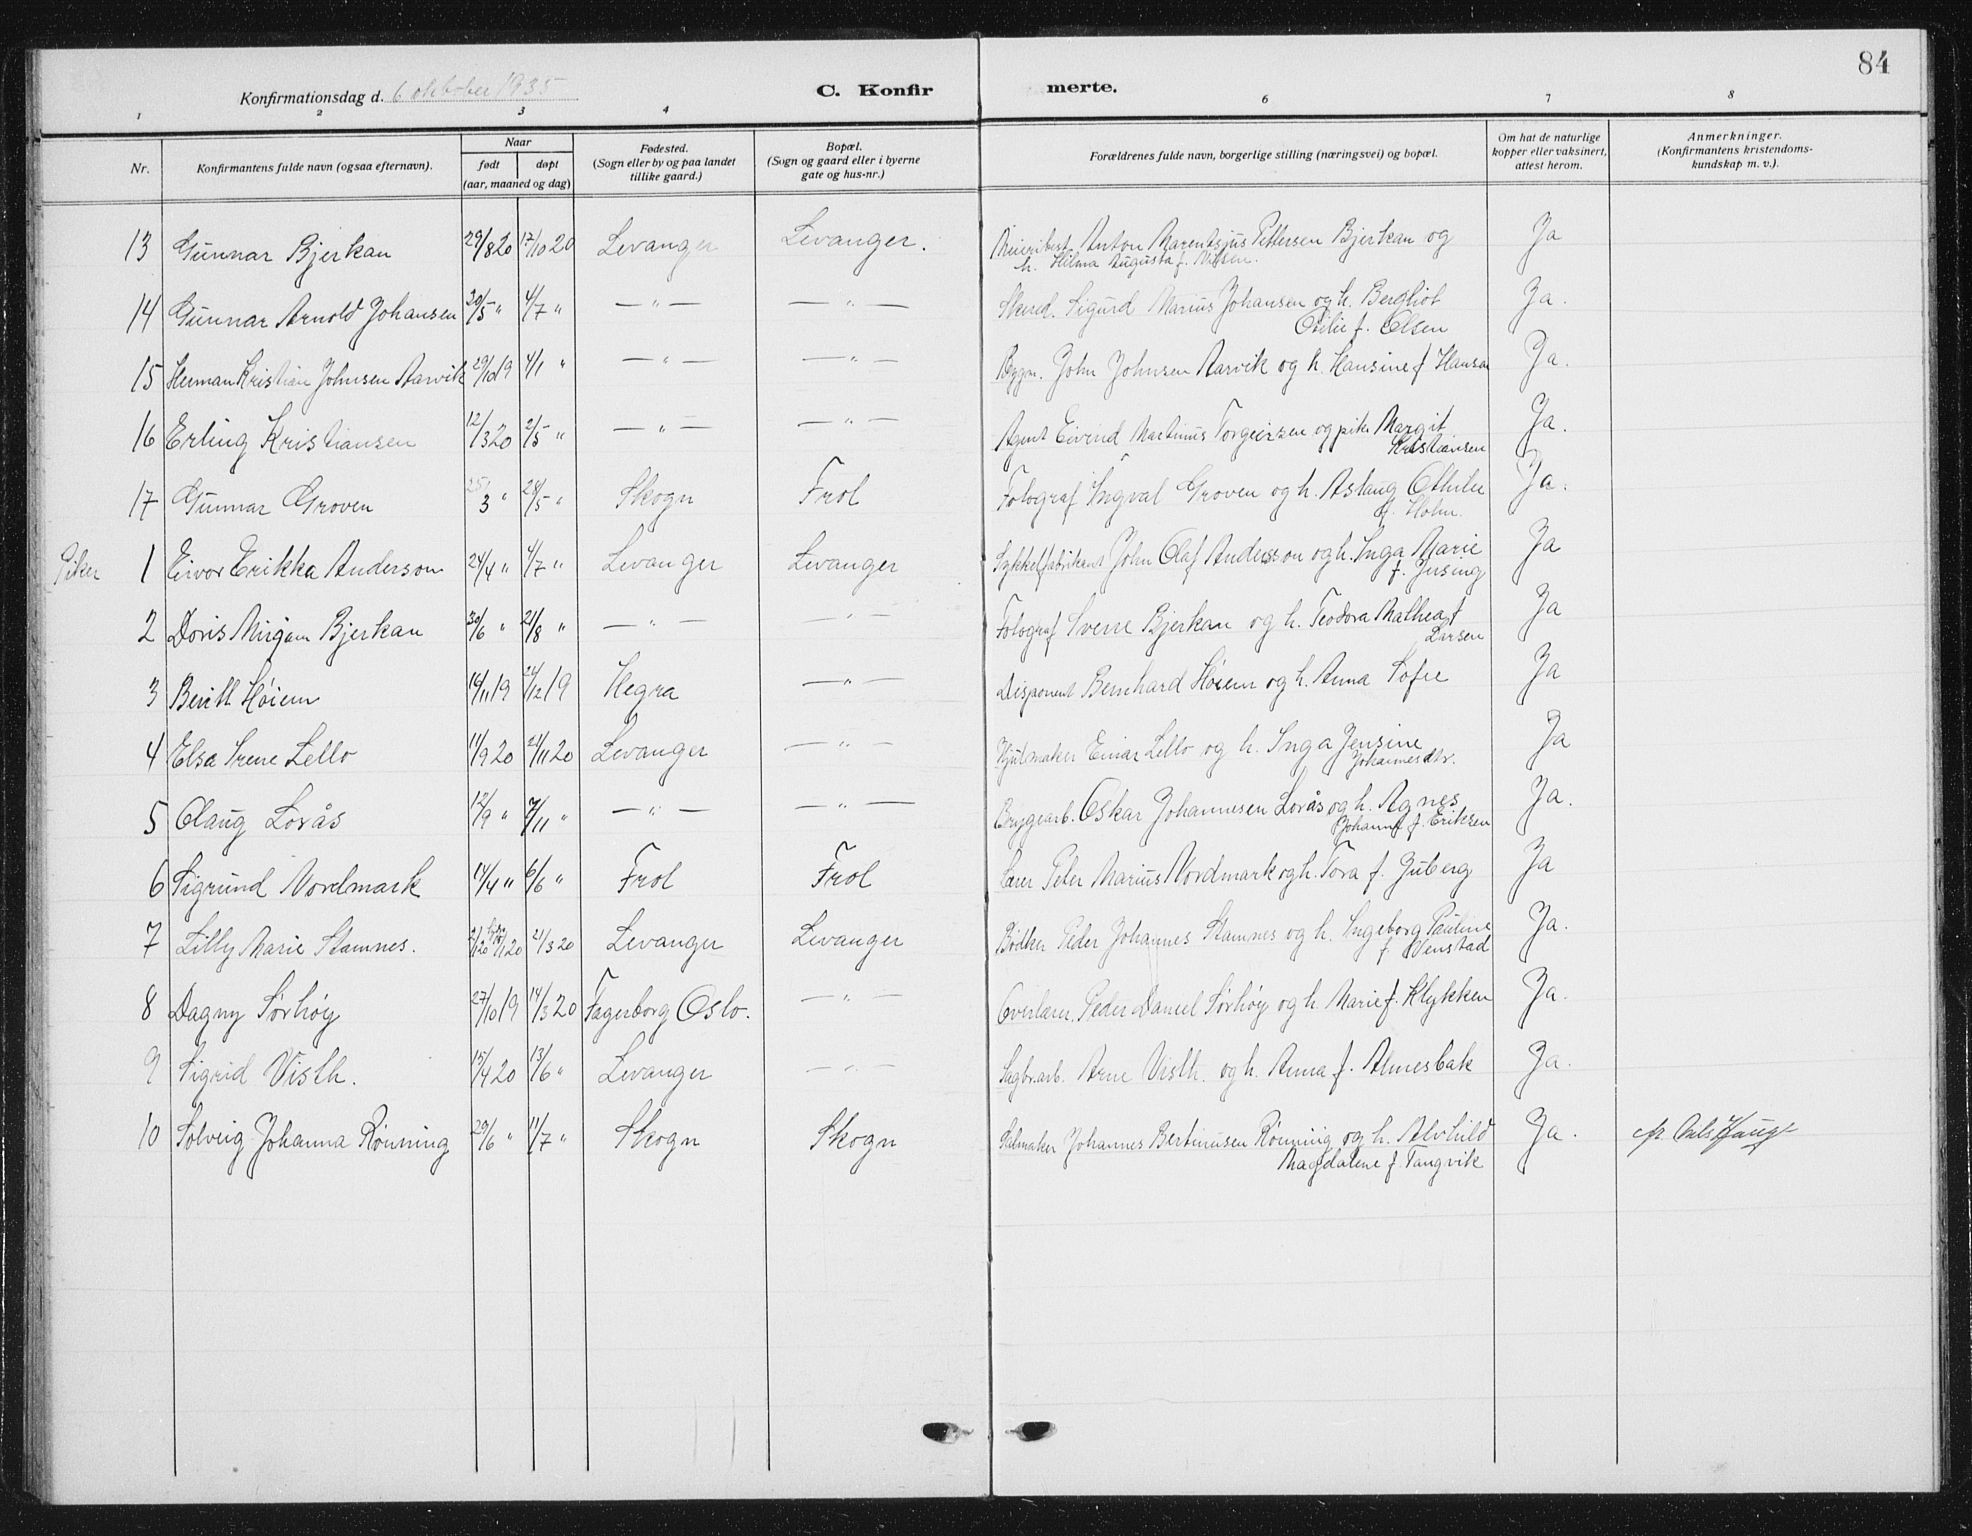 84
Konfirmationsdag d. 6 oktober 1935
C. Konfirmerte.
1 2 3 4 6 7 8
Nr. Konfirmantens fulde navn (ogsaa efternavn). Naar født døpt (aar, maaned og dag) Fødested. (Sogn eller by og paa landet tillike gaard.) Bopæl. (Sogn og gaard eller i byerne gate og hus-nr.) Forældrenes fulde navn, borgerlige stilling (næringsvei) og bopæl. Om hat de naturlige kopper eller vaksinert, attest herom. Anmerkninger. (Konfirmantens kristendomskundskap m. v.).
13 Gunnar Bjerkan 29/8 20 17/10 20 Levanger Levanger. Meieribest. Anton Marentsjus Pettersen Bjerkan og Ja
h. Hilma Augusta f. Nilsen.
14 Gunnar Arnold Johansen 20/5 " 4/7 " — " — — " — Skred. Sigurd Marius Johansen og h. Bergliot Ja.
Otilie f. Olsen
15 Herman Kristian Johnsen Aarvik 29/10 19 4/1 " — " — — " — Bygm. John Johnsen Aarvik og h. Hansine f Hansen Ja.
16 Erling Kristiansen 12/3 20 2/5 " — " — — " — Agent Eivind Martinus Torgersen og pike Margit Ja.
Kristiansen
17 Gunnar Groven 25/3 " 24/5 " Skogn Frol Fotograf Ingval Groven og h. Aslaug Othilie Ja.
f. Holm.
Piker 1 Eivor Erikka Anderson 24/4 " 4/7 " Levanger Levanger Sykkelfabrikant John Olaf Andersson og h. Inga Marie Ja
f. Jusing
2 Doris Mirjam Bjerkan 30/6 " 21/8 " — " — — " — Fotograf Sverre Bjerkan og h. Teodora Mathea f Ja
Larsen
3 Berith Høiem 16/11 19 24/12 19 Hegra — " — Disponent Bernhard Høiem og h. Anna Sofie Ja
4 Elsa Irene Lello 11/9 20 21/11 20 Levanger — " — Hjulmaker Einar Lello og h. Inga Jensine Ja
Johannesdtr.
5 Olaug Lorås 12/9 " 7/11 " — " — — " — Bryggearb. Oskar Johannesen Lorås og h. Agnes Ja.
Johanne f. Eriksen
6 Sigrund Nordmark 14/4 " 6/6 " Frol Frol Lærer Peter Marius Nordmark og h. Tora f. Juberg Ja
7 Lilly Marie Stamnes. 21/3 20 Levanger Levanger Bødker Peder Johannes Stamnes og h. Ingeborg Pauline Ja.
f. Venstad
8 Dagny Sørhøy 27/10 19 14/3 20 Fagerborg Oslo. — " — Overlærer. Peder Daniel Sørhøy og h. Marie f. Klykken Ja.
9 Sigrid Visth. 15/4 20 13/6 " Levanger — " — Sagbr.arb. Arne Visth. og h. Anna f. Almesbak Ja.
10 Solveig Johanna Rønning 29/6 " 11/7 " Skogn Skogn Salmaker Johannes Bertinusen Rønning og h. Alvhild Ja.
Magdalene f. Tangvik